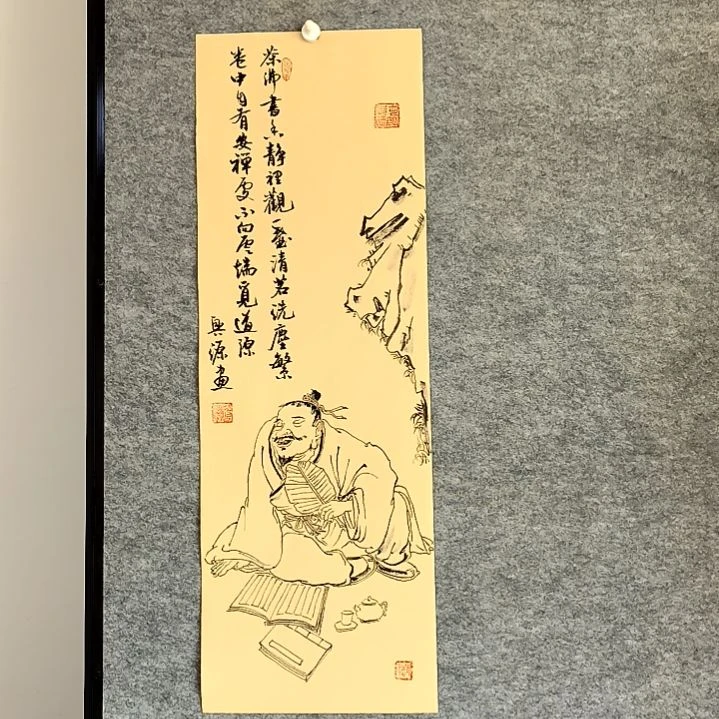 茶沸書香靜裡觀一盞清茗洗塵繁
卷中自有安禪處不向雲端覓道源
興源畫